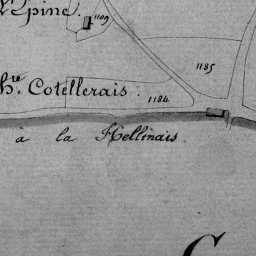 l'Epine.
1109
1185
Ch.re Cotellerais.
1184
à la Hellinais.